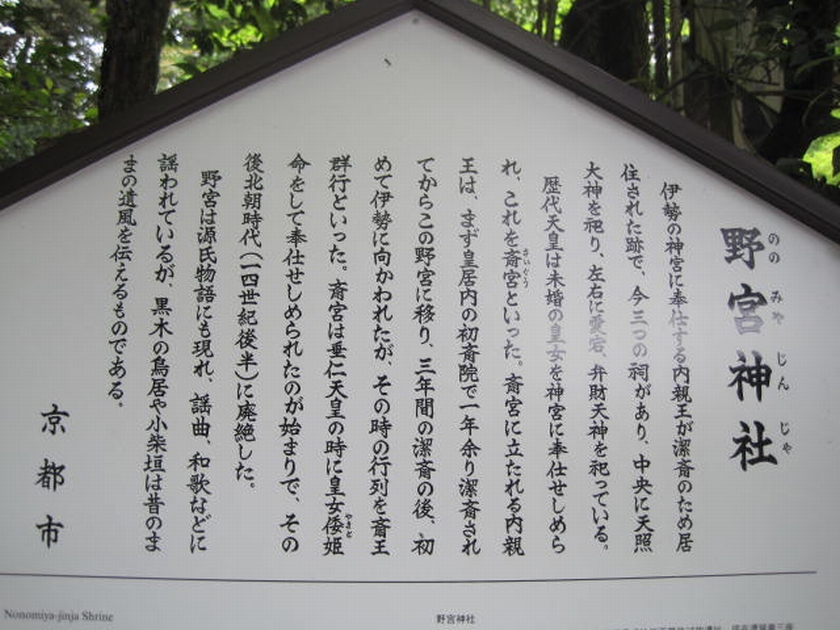 野宮神社
ののみやじんじゃ
伊勢の神宮に奉仕する内親王が潔斎のため居
住された跡で、今三つの祠があり、中央に天照
大神を祀り、左右に愛宕、弁財天神を祀っている。
歴代天皇は未婚の皇女を神宮に奉仕せしめら
れ、これを斎宮といった。斎宮に立たれる内親
さいぐう
王は、まず皇居内の初斎院で一年余り潔斎され
てからこの野宮に移り、三年間の潔斎の後、初
めて伊勢に向かわれたが、その時の行列を斎王
群行といった。斎宮は垂仁天皇の時に皇女倭姫
やまと
命をして奉仕せしめられたのが始まりで、その
後北朝時代(一四世紀後半)に廃絶した。
野宮は源氏物語にも現れ、謡曲、和歌などに
謡われているが、黒木の鳥居や小柴垣は昔のま
まの遺風を伝えるものである。
京都市
Nonomiya-jinja Shrine
野宮神社